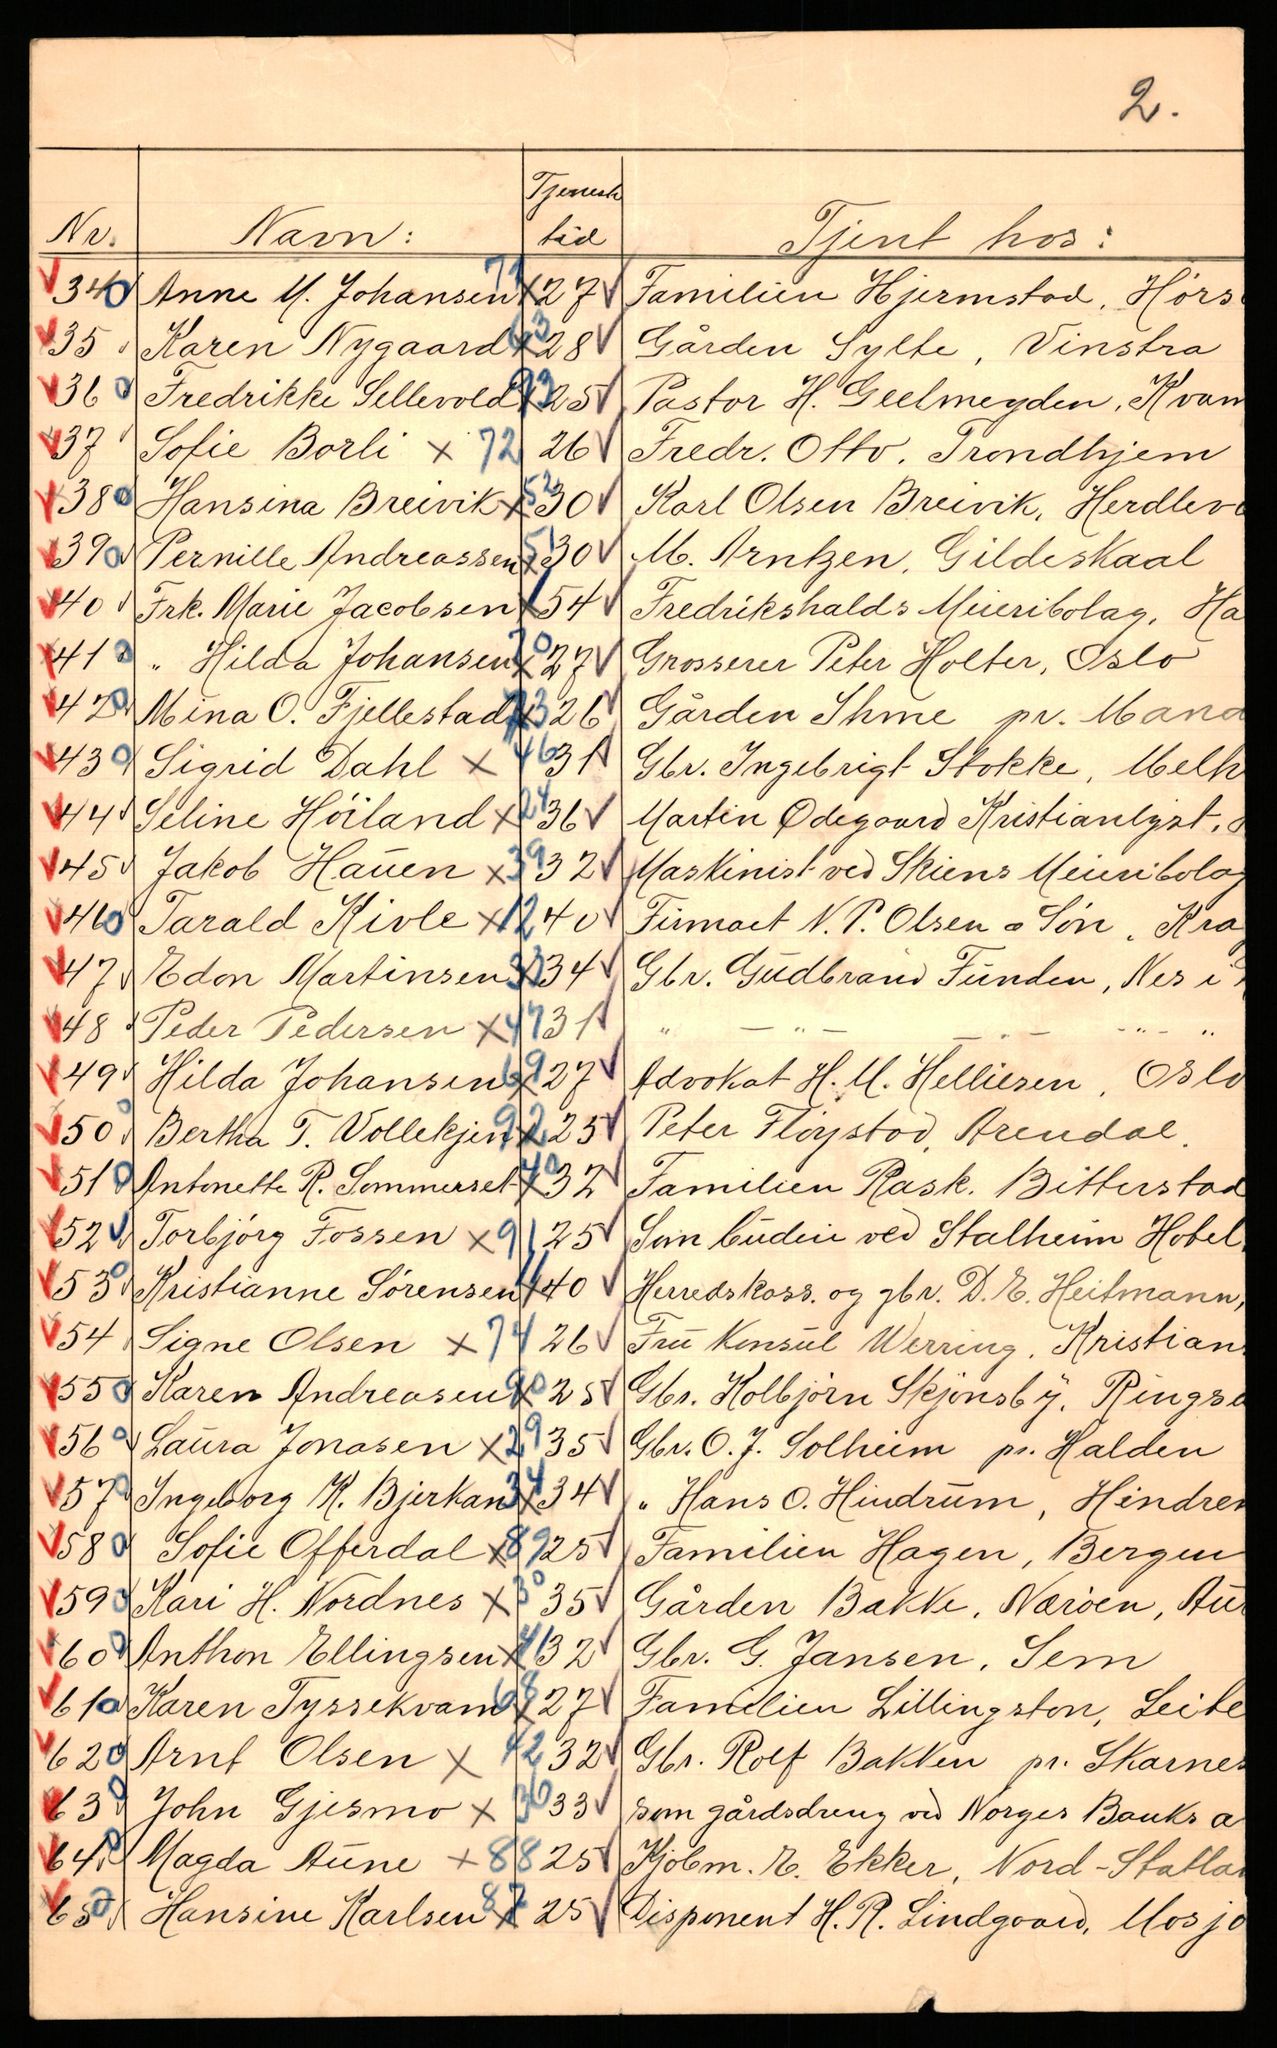 2.
Nr. Navn: Tjeneste tid Tjent hos:
34 Anne M. Johansen 71 x 27 Familien Hjermstad, Hörs
35 Karen Nygaard 63 x 28 Gården Sylte, Vinstra
36 Fredrikke Sellevold x 25 Pastor H. Geelmeyden, Kvam
37 Sofie Borli x 72 26 Fredr. Otto, Trondhjem
38 Hansina Breivik x 52 30 Karl Olsen Breivik, Herdlevæ
39 Pernille Andreassen x 51 30 M. Arntzen, Gildeskaal
40 Frk. Marie Jacobsen x 1 54 Fredrikshalds Meieribolag, Ha
41 " Hilda Johansen x 70 27 Grosserer Peter Holter, Oslo
42 Mina O. Fjellestad x 73 26 Gården Ihme pr. Mand
43 Sigrid Dahl x 46 31 Gbr. Ingebrigt Stokke, Melh
44 Seline Höiland x 24 36 Martin Ødegaard Kristianlyst,
45 Jakob Hauen x 39 32 Maskinist ved Skiens Meieribolag
46 Tarald Kivle x 12 40 Firmaet N. P. Olsen & Sön, Krag
47 Edon Martinsen x 33 34 Gbr. Gudbrand Funden, Nes i
48 Peder Pedersen x 47 31 " — " — — " — - " - "
49 Hilda Johansen x 69 27 Advokat H. M. Helliesen, Oslo
50 Bertha T. Vollekjen x 92 25 Peter Flöystad, Arendal.
51 Antonette R. Sommerset x 40 32 Familien Rask. Bitterstad
52 Torbjörg Fossen x 91 25 Som budeie ved Stalheim Hotel
53 Kristianne Sørensen x 11 40 Herredskass. og gbr. D. E. Heitmann,
54 Signe Olsen x 74 26 Fru Konsul Werring, Kristian
55 Karen Andreasen x 90 25 Gbr. Kolbjörn Skjönsby, Ringsa
56 Laura Jonasen x 29 35 Gbr. O. J. Solheim pr. Halden
57 Ingeborg K. Bjerkan x 34 34 " Hans O. Hindrum, Hindrem
58 Sofie Offerdal x 89 25 Familien Hagen, Bergen
59 Kari H. Nordnes x 30 35 Gården Bakke, Næröen, Aur
60 Anthon Ellingsen x 41 32 Gbr. G. Jansen, Sem
61 Karen Tyssekvam x 68 27 Familien Lillingston, Leite
62 Arnt Olsen x 42 32 Gbr. Rolf Bakken pr. Skarnes
63 John Gjesmo x 36 33 som gårdsdreng ved Norges Banks a
64 Magda Aune x 88 25 Kjøbm. E. Ekker, Nord-Statlan
65 Hansine Karlsen x 87 25 Disponent H. R. Lindgaard, Mosjö